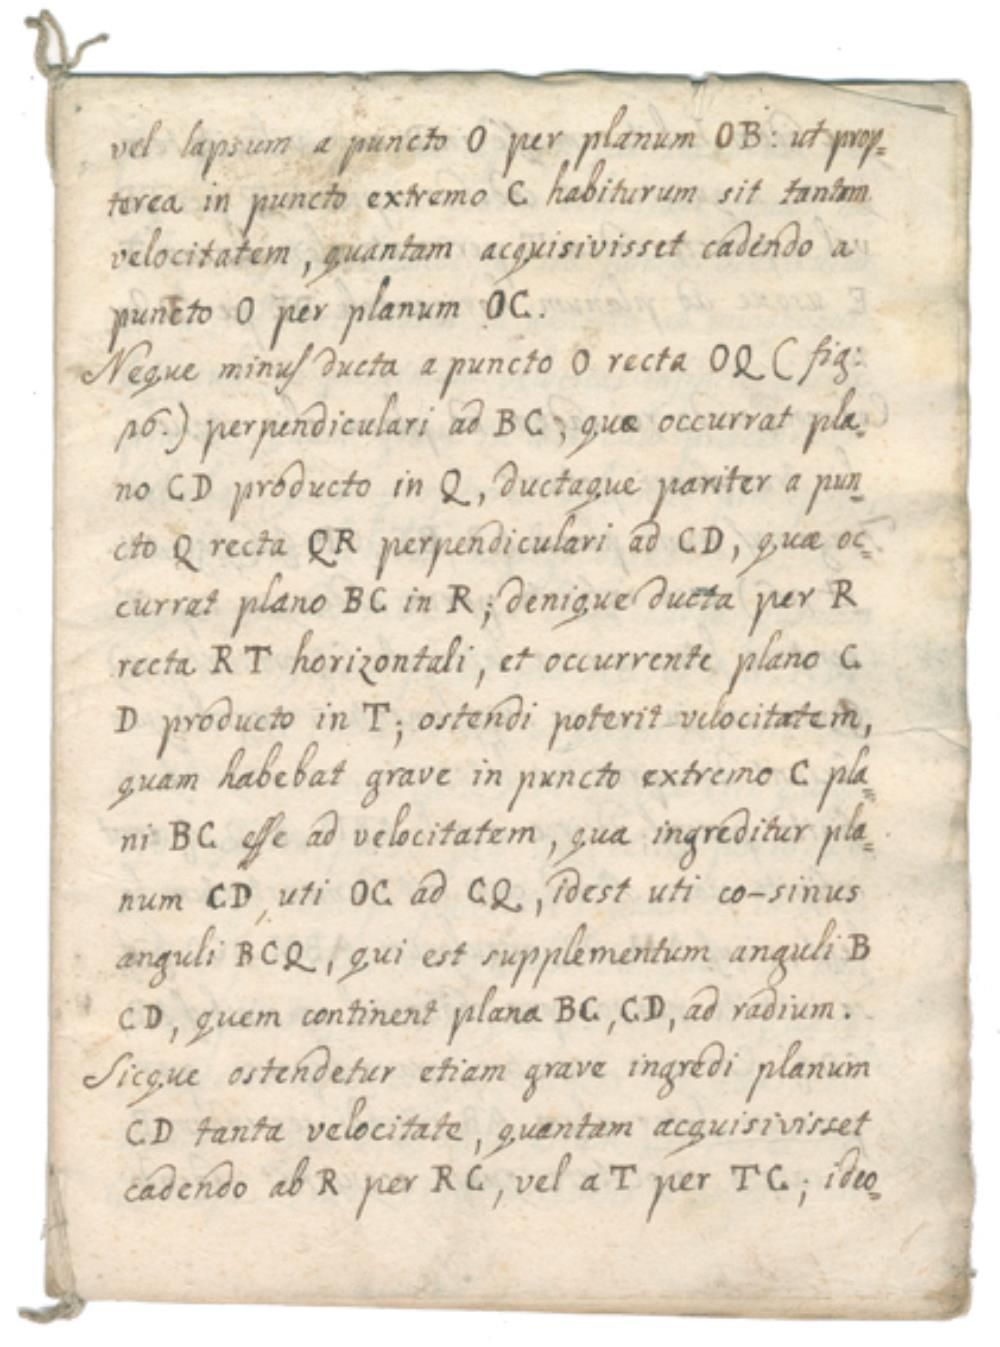 vel lapsum a puncto O per planum OB: ut prop=
terea in puncto extremo C habiturum sit tantam
velocitatem, quantam acquisivisset cadendo a
puncto O per planum OC.
Neque minus ducta a puncto O recta OQ (fig:
16.) perpendiculari ad BC; quæ occurrat pla=
no CD producto in Q, ductaque pariter a pun=
cto Q recta QR perpendiculari ad CD, quæ oc=
currat plano BC in R; denique ducta per R
recta RT horizontali, et occurrente plano C
D producto in T; ostendi poterit velocitatem,
quam habebat grave in puncto extremo C pla=
ni BC esse ad velocitatem, qua ingreditur pla=
num CD, uti OC ad CQ, idest uti co-sinus
anguli BCQ, qui est supplementum anguli B
CD, quem continent plana BC, CD, ad radium.
Sicque ostendetur etiam grave ingredi planum
CD tanta velocitate, quantam acquisivisset
cadendo ab R per RC, vel a T per TC; ideo=